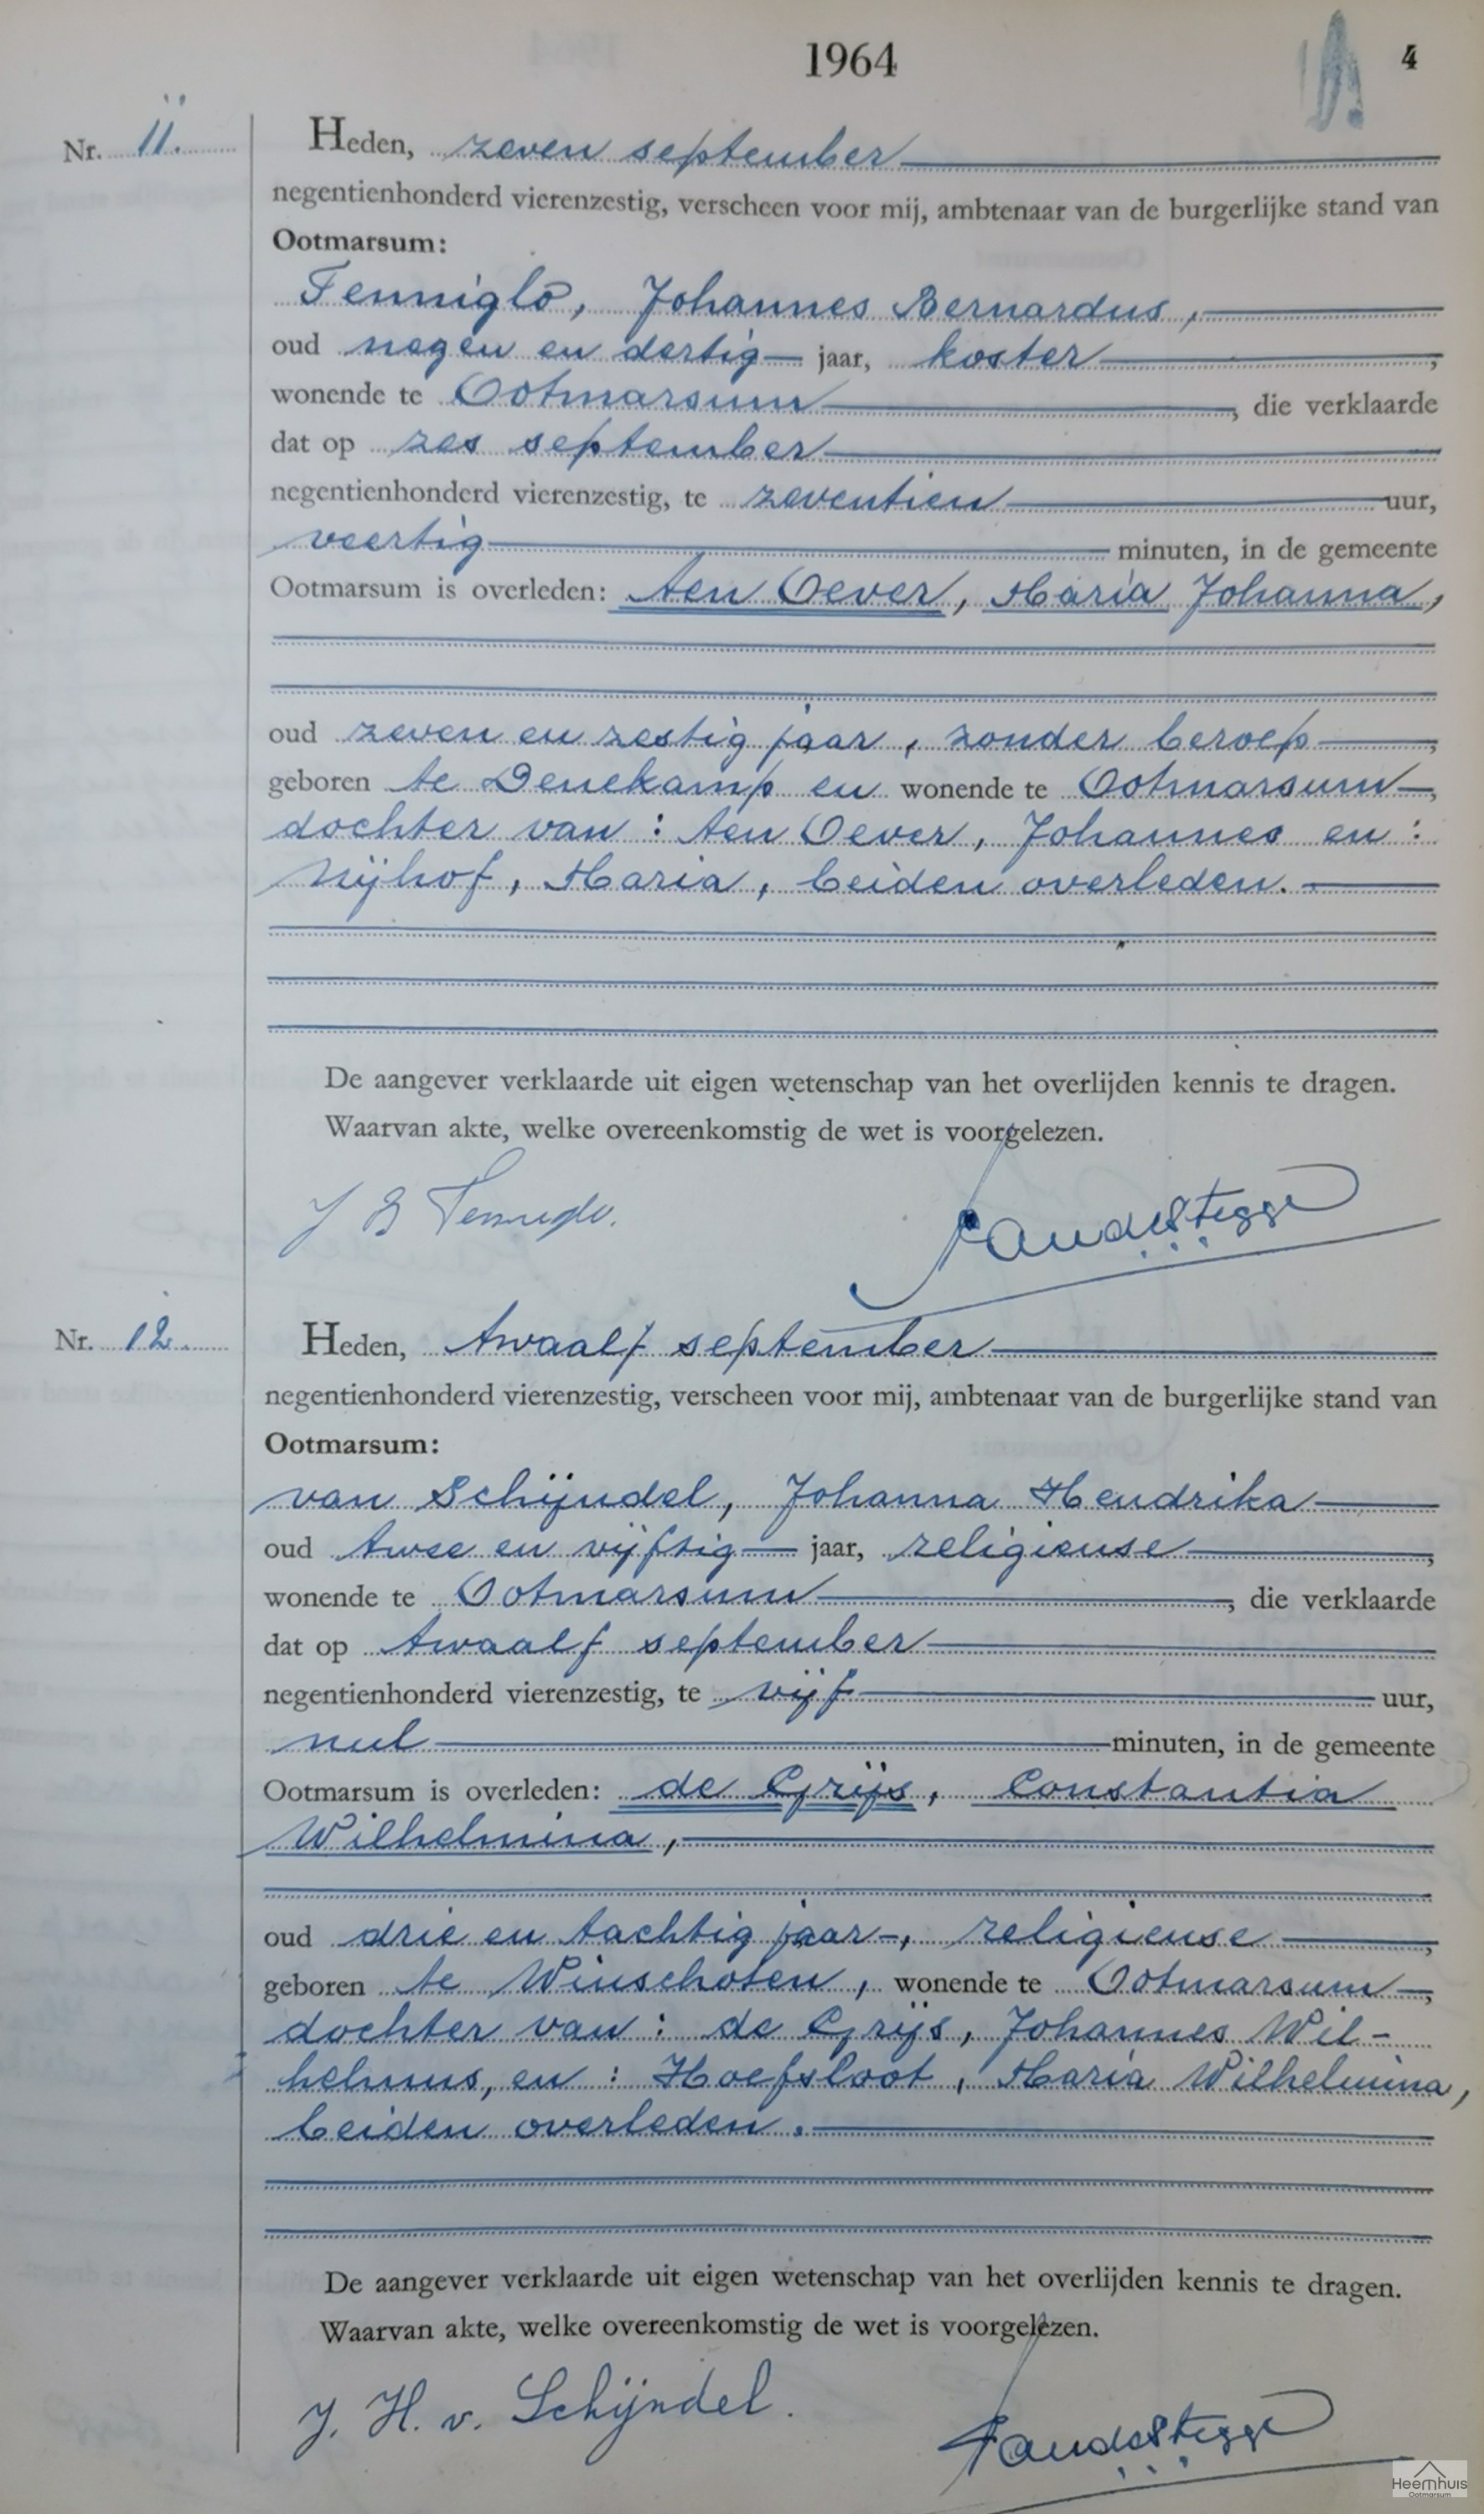 1964
4
Nr. 11.
Heden, zeven september
negentienhonderd vierenzestig, verscheen voor mij, ambtenaar van de burgerlijke stand van
Ootmarsum:
Tenniglo, Johannes Bernardus,
oud negen en dertig jaar, koster,
wonende te Ootmarsum, die verklaarde
dat op zes september
negentienhonderd vierenzestig, te zeventien uur,
veertig minuten, in de gemeente
Ootmarsum is overleden: ten Oever, Maria Johanna,
oud zeven en zestig jaar, zonder beroep,
geboren te Denekamp en wonende te Ootmarsum,
dochter van: ten Oever, Johannes en:
Nijhof, Maria, beiden overleden.
De aangever verklaarde uit eigen wetenschap van het overlijden kennis te dragen.
Waarvan akte, welke overeenkomstig de wet is voorgelezen.
J B Tenniglo.
Nr. 12.
Heden, twaalf september
negentienhonderd vierenzestig, verscheen voor mij, ambtenaar van de burgerlijke stand van
Ootmarsum:
van Schijndel, Johanna Hendrika
oud twee en vijftig jaar, religieuse,
wonende te Ootmarsum, die verklaarde
dat op twaalf september
negentienhonderd vierenzestig, te vijf uur,
nul minuten, in de gemeente
Ootmarsum is overleden: de Grijs, Constantia
Wilhelmina,
oud drie en tachtig jaar, religieuse,
geboren te Winschoten, wonende te Ootmarsum,
dochter van: de Grijs, Johannes Wil-
helmus, en: Hoefsloot, Maria Wilhelmina,
beiden overleden.
De aangever verklaarde uit eigen wetenschap van het overlijden kennis te dragen.
Waarvan akte, welke overeenkomstig de wet is voorgelezen.
J. H. v. Schijndel.
Heemhuis
Ootmarsum